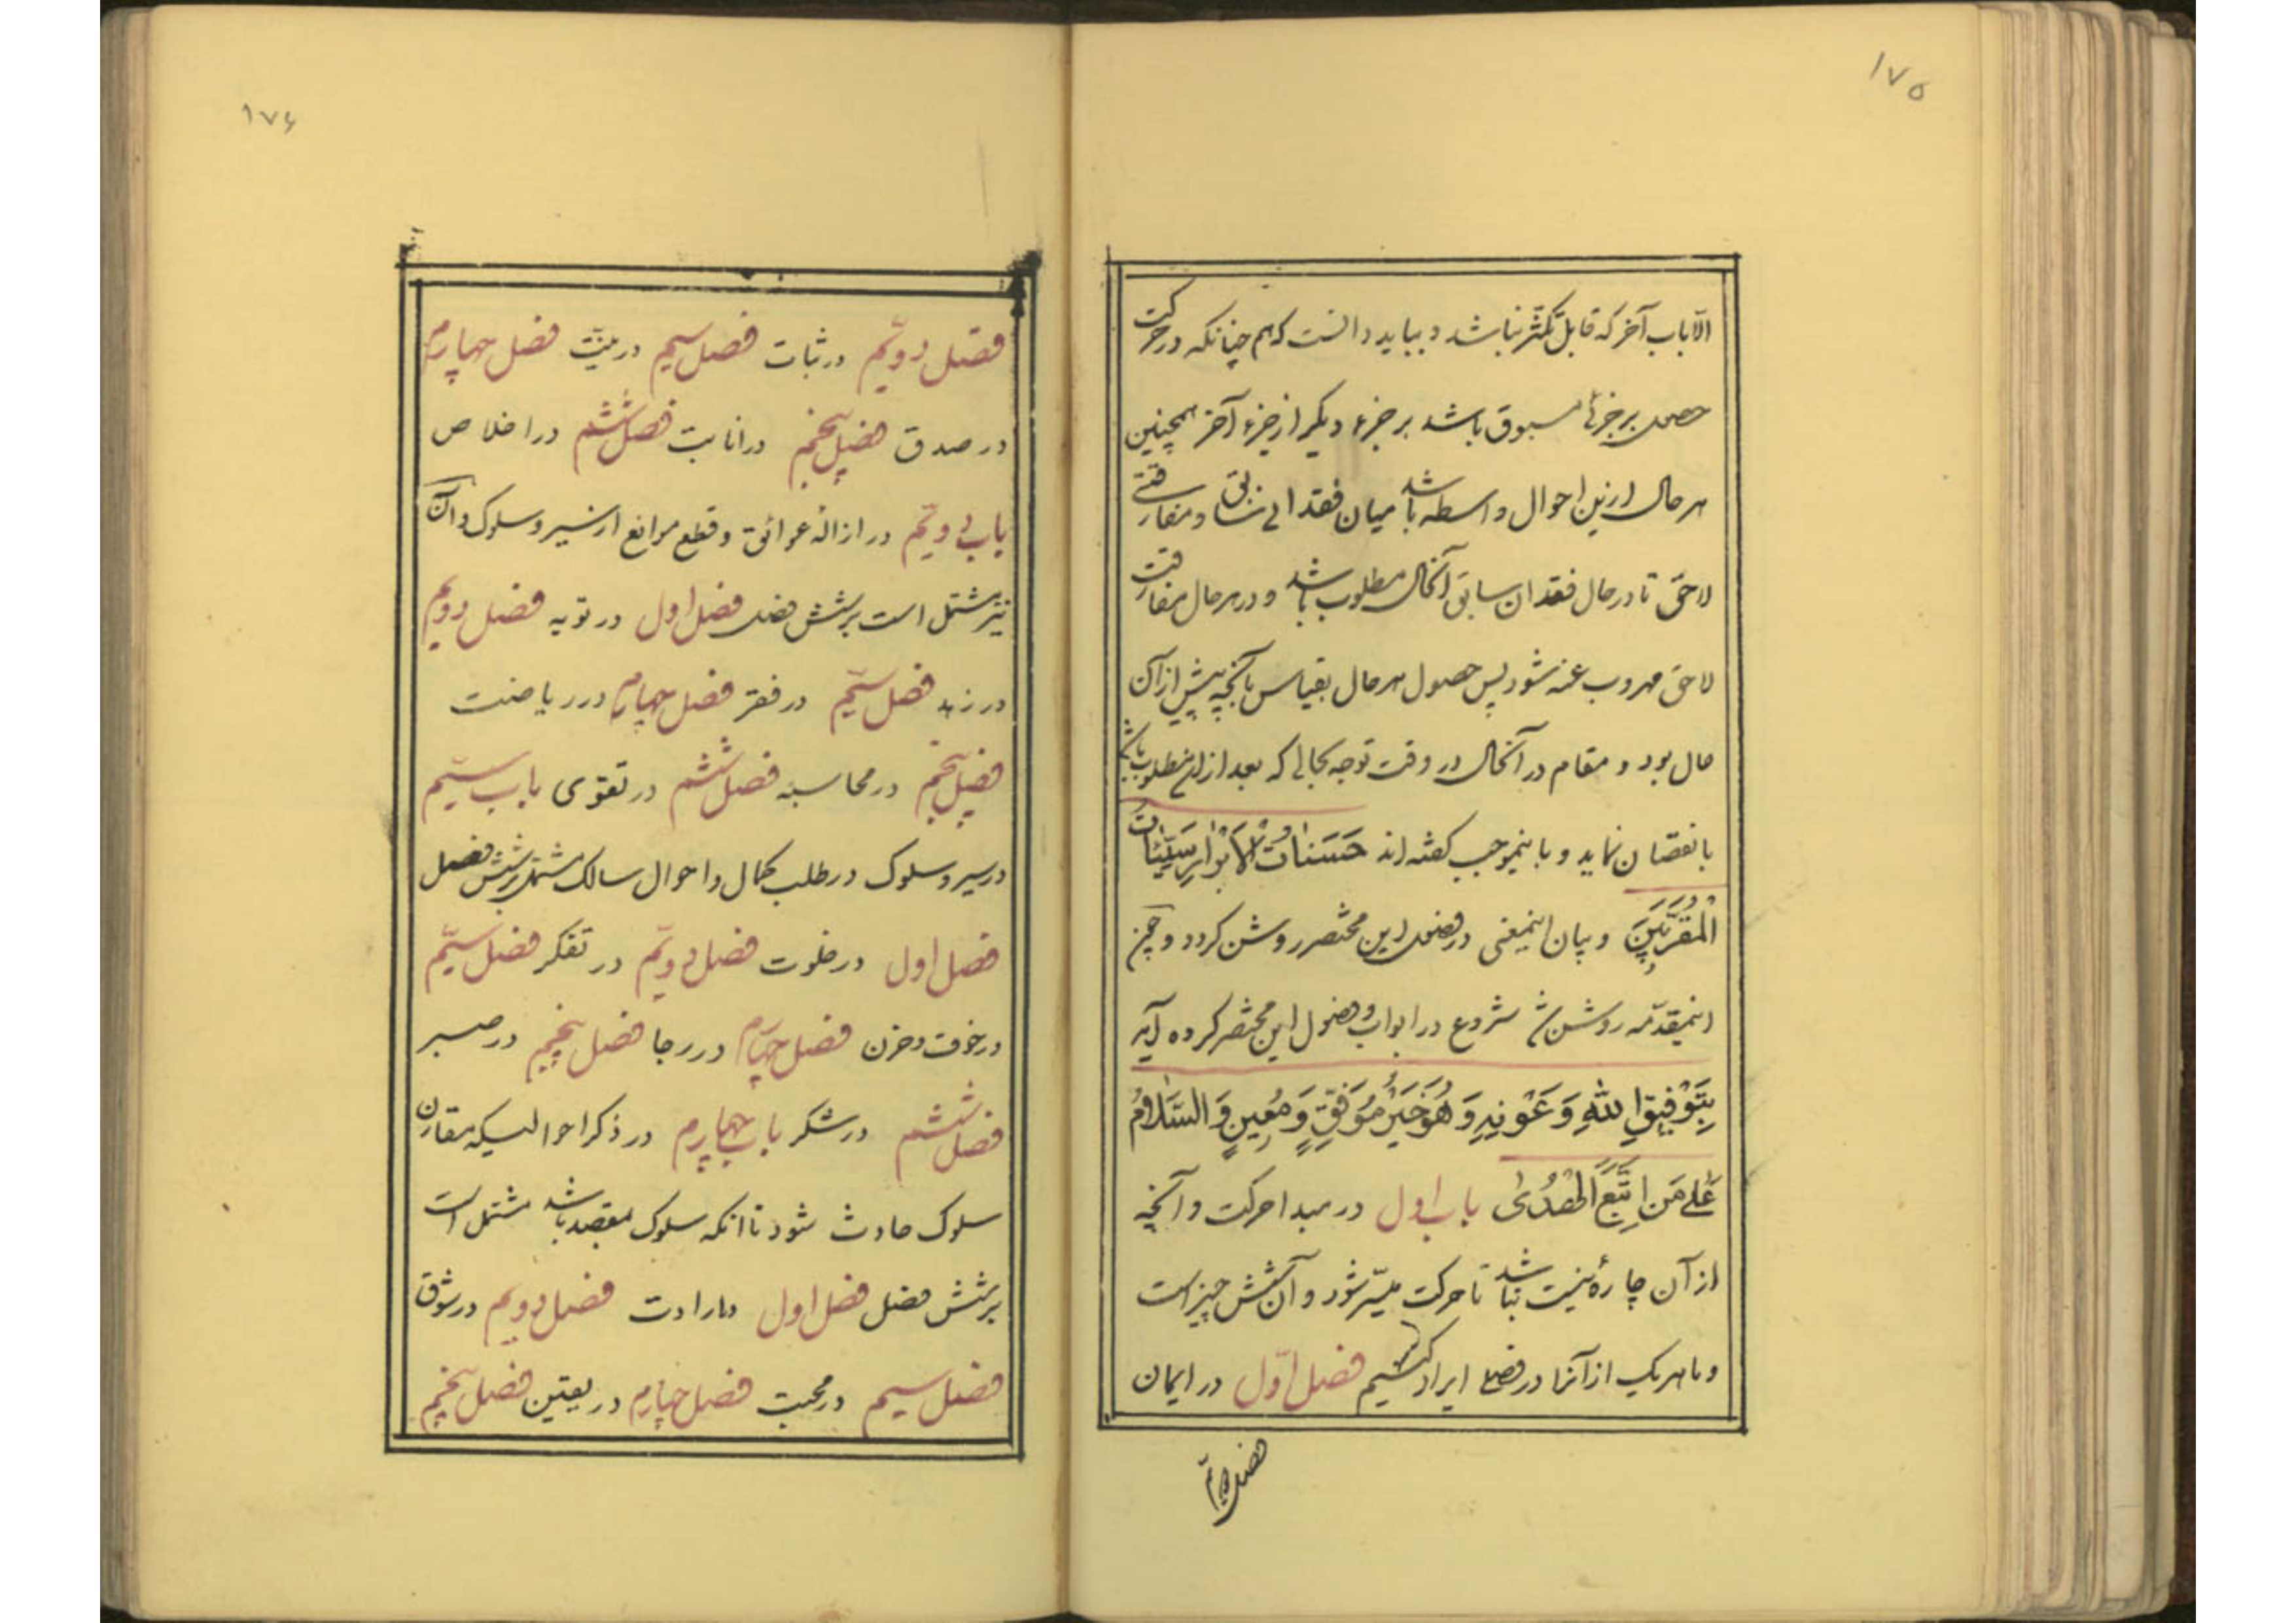 ۱۷۵
الا باب آخر که قابل تکثر نباشد و بباید دانست که هم چنانکه در حرکت
حصول هر جزئی مسبوق باشد بر جزء دیگر از جزء آخر همچنین
هر حال ازین احوال واسطه باشد میان فقدانی سابق و مفارقتی
لاحق تا در حال فقدان سابق آنحال مطلوب باشد و در هر حال مفارقت
لاحق مهروب عنه شود پس حصول هر حال بقیاس بآنچه پیش از آن
حال بود و مقام در آنحال در وقت توجه بحالی که بعد از ان مطلوب باشد
با نقصان نماید و باینموجب گفته‌اند حَسَناتُ الاَبْرارِ سَیِّئاتُ
الْمُقَرَّبینَ و بیان اینمعنی در فصول این مختصر روشن گردد و چون
اینمقدّمه روشن شد شروع در ابواب و فصول این مختصر کرده آید
بِتَوْفیقِ اللهِ وَ عَوْنِهِ وَ هُوَ خَیْرُ مُوَفِّقٍ وَ مُعینٍ وَ السَّلامُ
عَلی مَنِ اتَّبَعَ الْهُدی باب اول در مبدا حرکت و آنچه
از آن چاره نیست نباشد تا حرکت میسّر شود و آن شش چیز است
و ما هر یک از آنرا در فصلی ایراد کنیم فصل اوّل در ایمان
فصل دویّم
۱۷۶
فصل دویّم در ثبات فصل سیم در نیّت فصل چهارم
در صدق فصل پنجم در انابت فصل ششم در اخلاص
باب دویّم در ازالهٔ عوائق و قطع موانع از سیر و سلوک و آن
نیز مشتمل است بر شش فصل فصل اول در توبه فصل دویم
در زهد فصل سیّم در فقر فصل چهارم در ریاضت
فصل پنجم در محاسبه فصل ششم در تقوی باب سیّم
در سیر و سلوک در طلب کمال و احوال سالک مشتمل بر شش فصل
فصل اول در خلوت فصل دویّم در تفکر فصل سیّم
در خوف و حزن فصل چهارم در رجا فصل پنجم در صبر
فصل ششم در شکر باب چهارم در ذکر احوالیکه مقارن
سلوک حادث شود تا انکه سلوک بمقصد باشد مشتمل است
بر شش فصل فصل اول در ارادت فصل دویم در شوق
فصل سیم در محبت فصل چهارم در یقین فصل پنجم